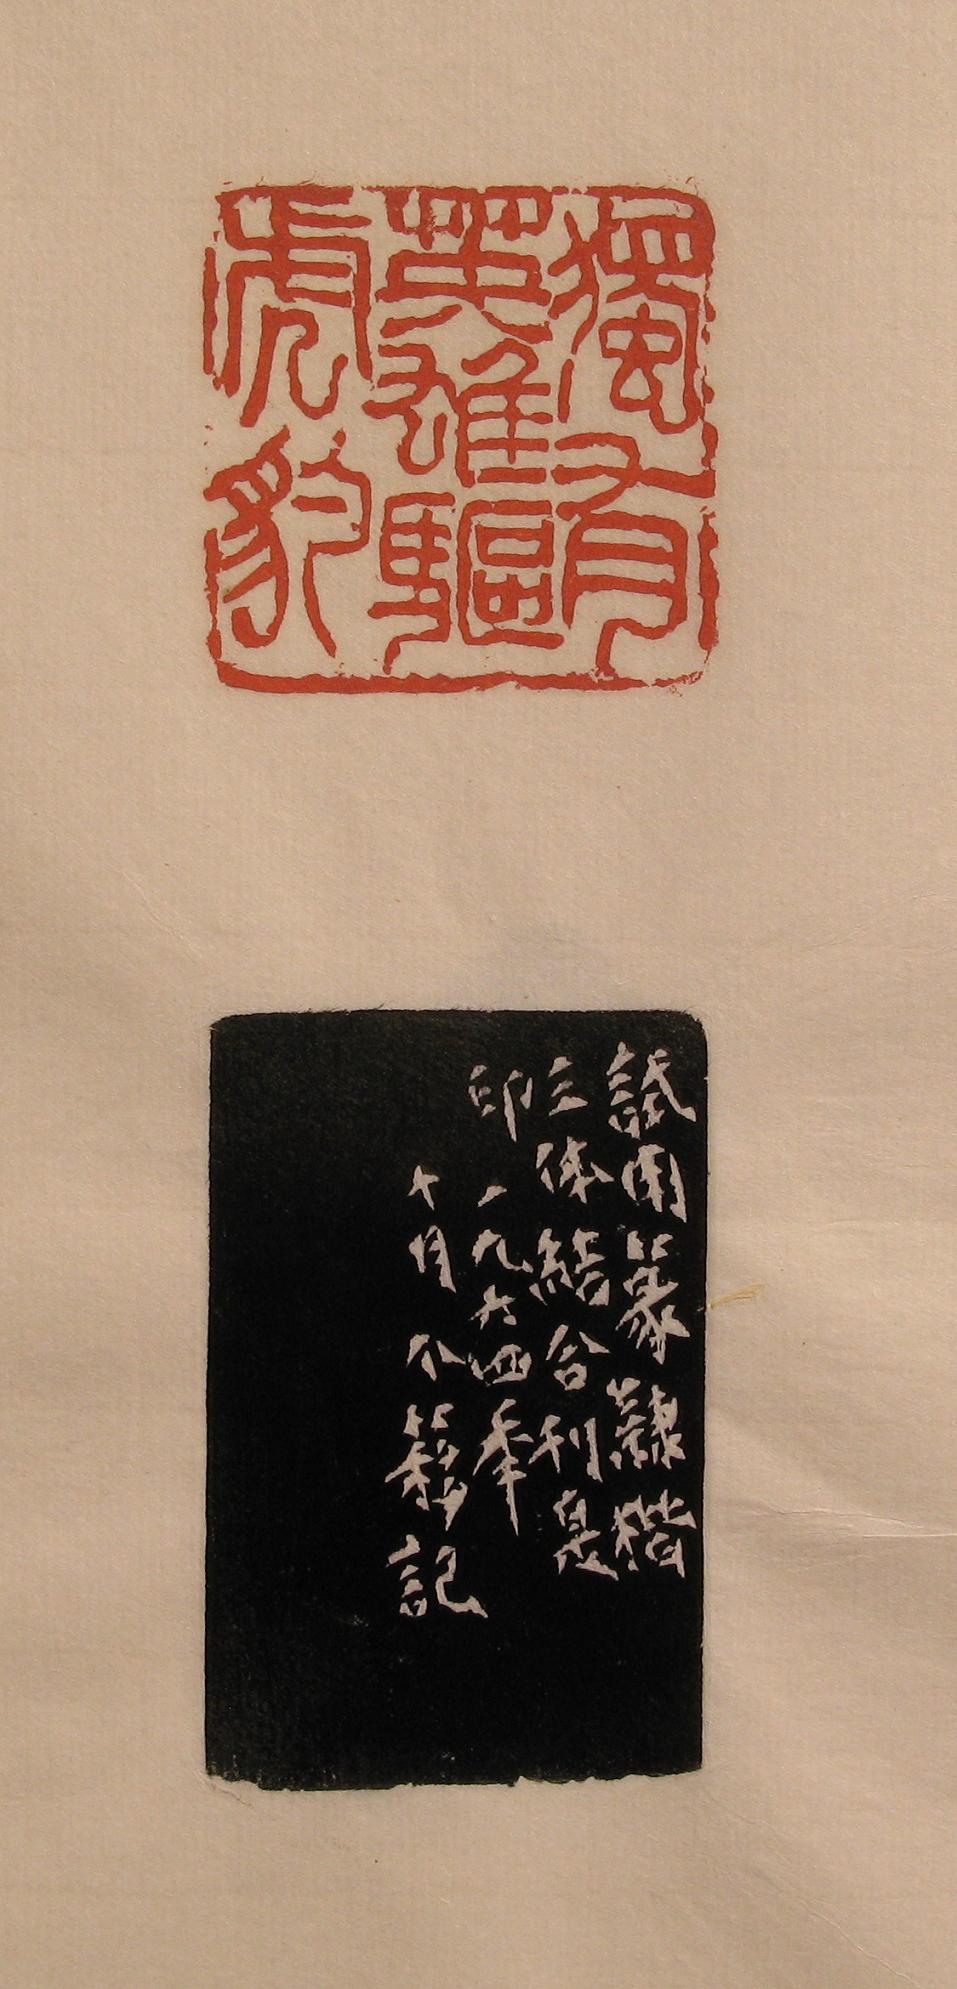 獨有
英雄驅
虎豹
試用篆隸楷
三体結合刊是
印 一九六四年
十月 个簃記